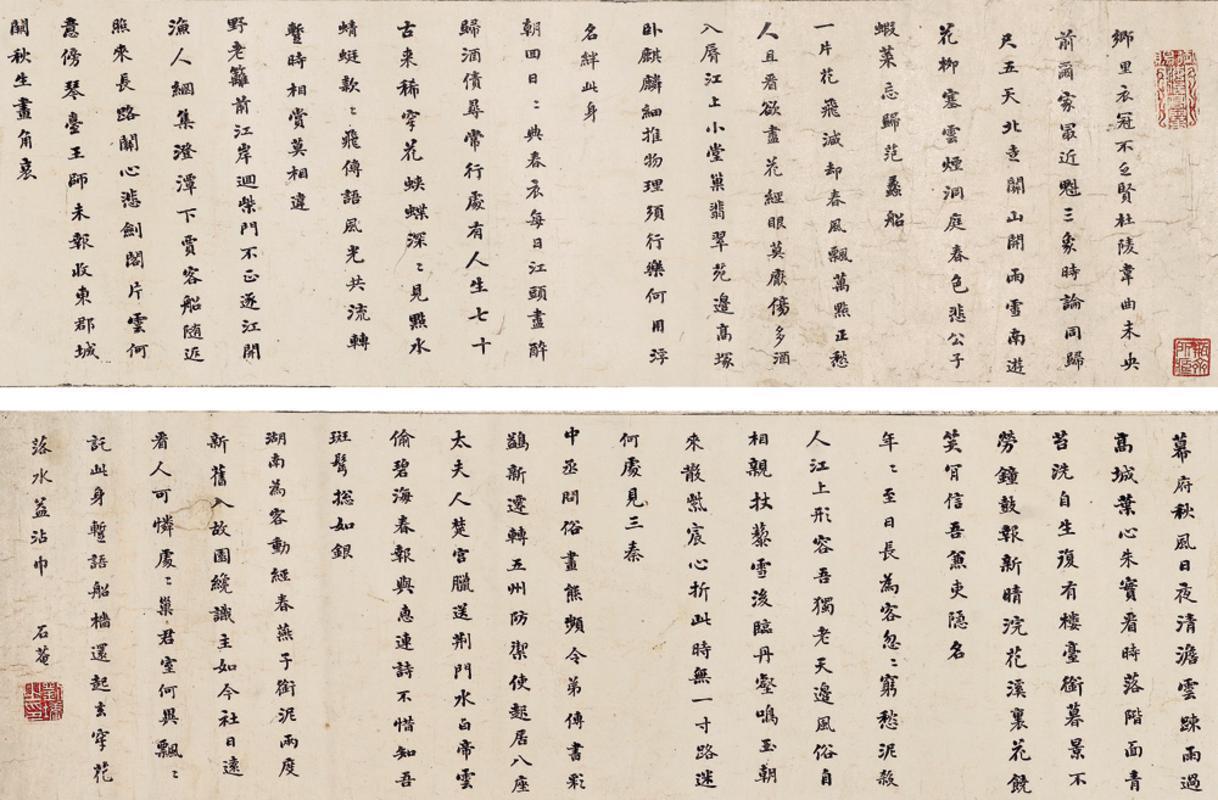 鄉里衣冠不乏賢杜陵韋曲未央
前爾家㝡近魁三象時論同歸
尺五天北走關山開雨雪南遊
花柳塞雲煙洞庭春色悲公子
蝦菜忘歸范蠡船
一片花飛減却春風飄萬點正愁
人且看欲盡花經眼莫厭傷多酒
入脣江上小堂巢翡翠苑邊高塚
臥麒麟細推物理須行樂何用浮
名絆此身
朝回日〻典春衣每日江頭盡醉
歸酒債尋常行處有人生七十
古來稀穿花蛺蝶深〻見點水
蜻蜓款〻飛傳語風光共流轉
暫時相賞莫相違
野老籬前江岸迴柴門不正逐江開
漁人網集澄潭下賈客船隨返
照來長路關心悲劍閣片雲何
意傍琴臺王師未報收東郡城
闕秋生畫角哀
幕府秋風日夜清澹雲踈雨過
高城葉心朱實看時落階面青
苔洗自生復有樓臺銜暮景不
勞鐘鼓報新晴浣花溪裏花饒
笑肯信吾兼吏隱名
年〻至日長為客忽〻窮愁泥殺
人江上形容吾獨老天邊風俗自
相親扶藜雪後臨丹壑鳴玉朝
來散紫宸心折此時無一寸路迷
何處見三秦
中丞問俗畫熊頻令弟傳書彩
鷁新遷轉五州防禦使起居八座
太夫人楚宮臘送荊門水白帝雲
偷碧海春報與惠連詩不惜知吾
斑鬢総如銀
湖南為客動經春燕子銜泥兩度
新舊入故園纔識主如今社日遠
看人可憐處〻巢君室何異飄〻
託此身暫語船檣還起去穿花
落水益沾巾 石菴
劉墉之印